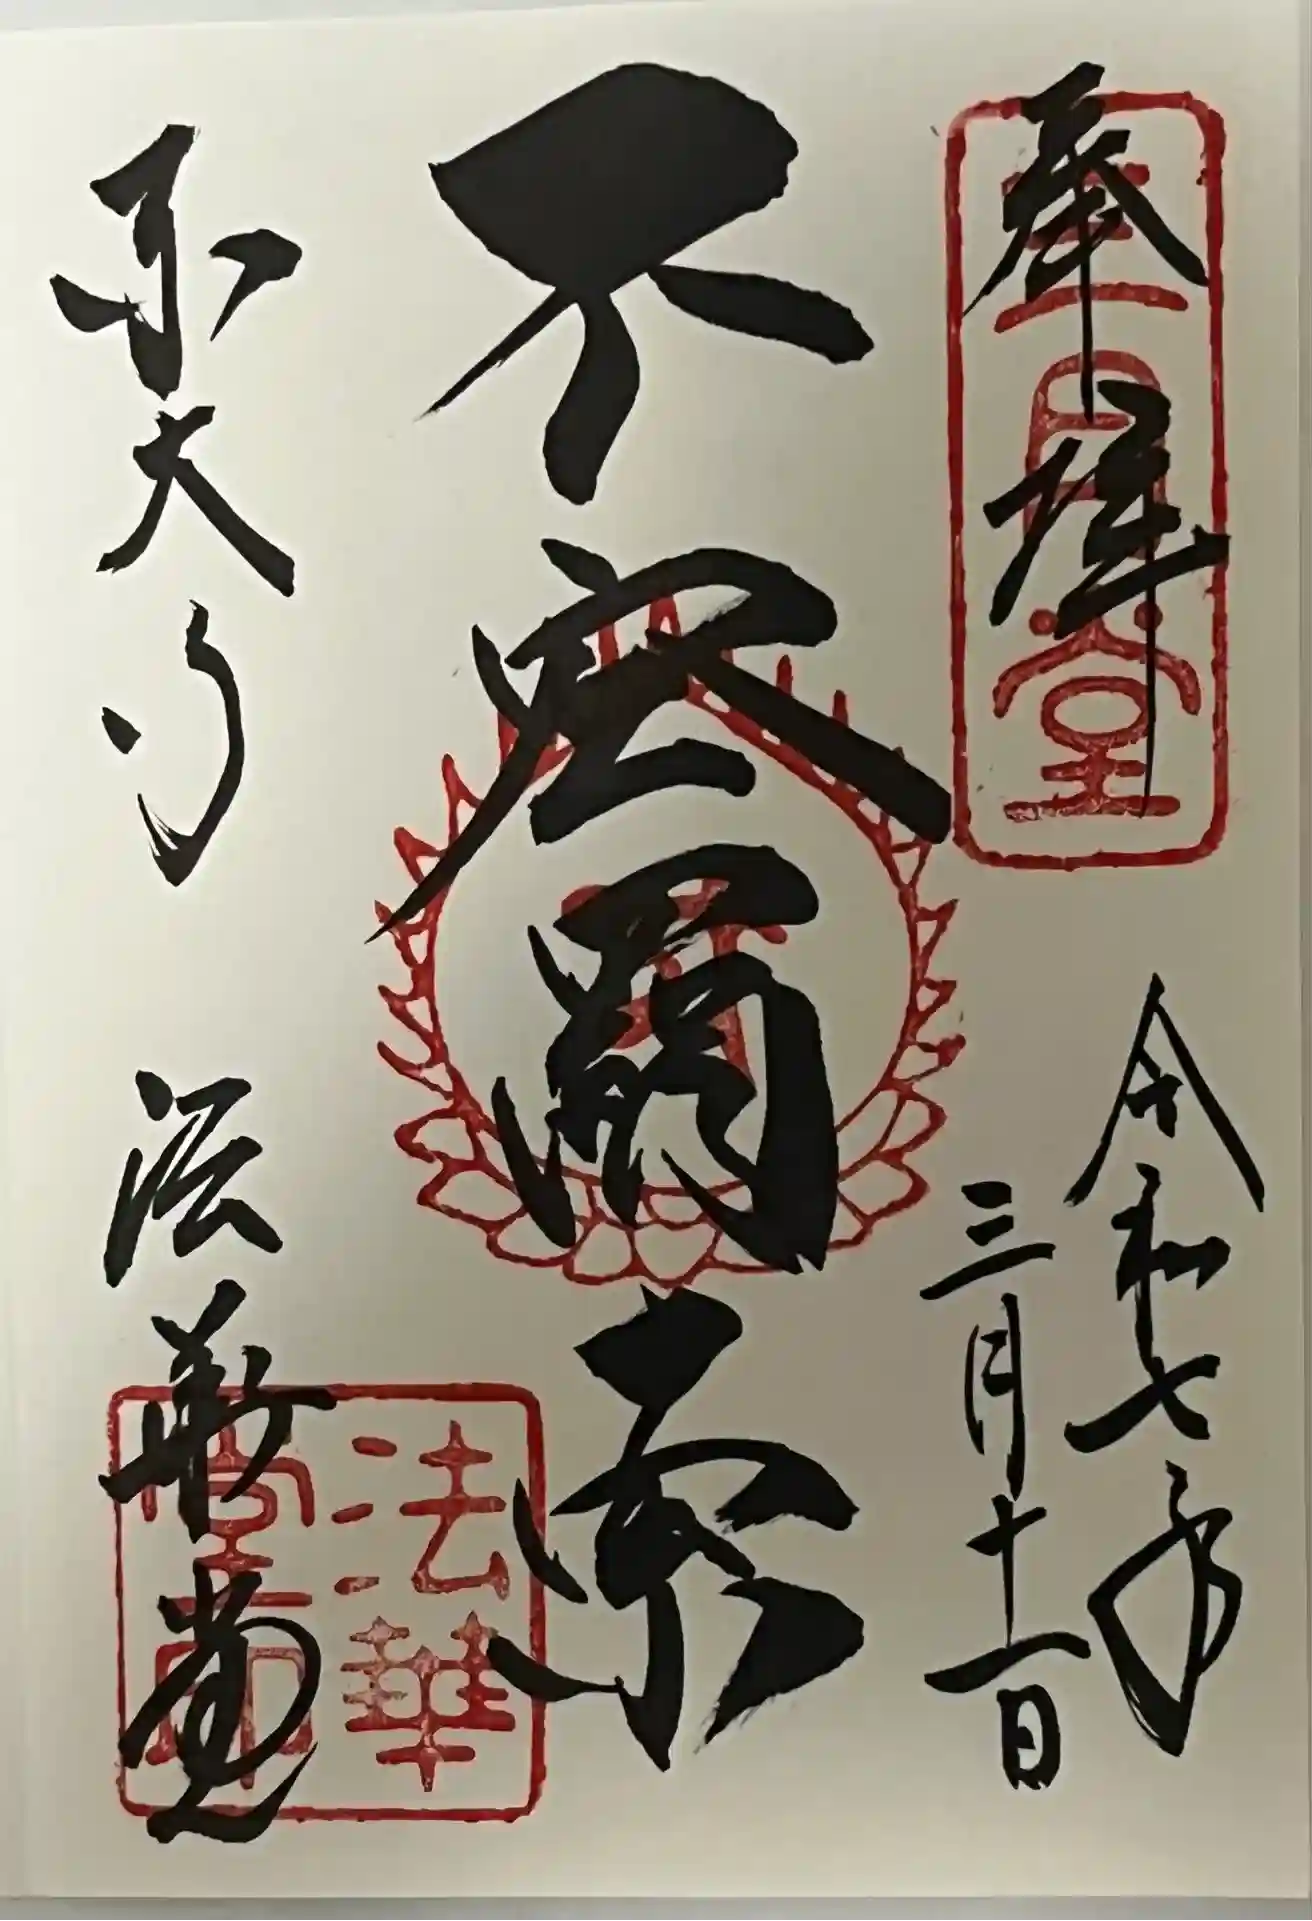 奉拝
令和七年
三月十一日
不空羂索
東大寺
法華堂
三月堂
法華
堂印